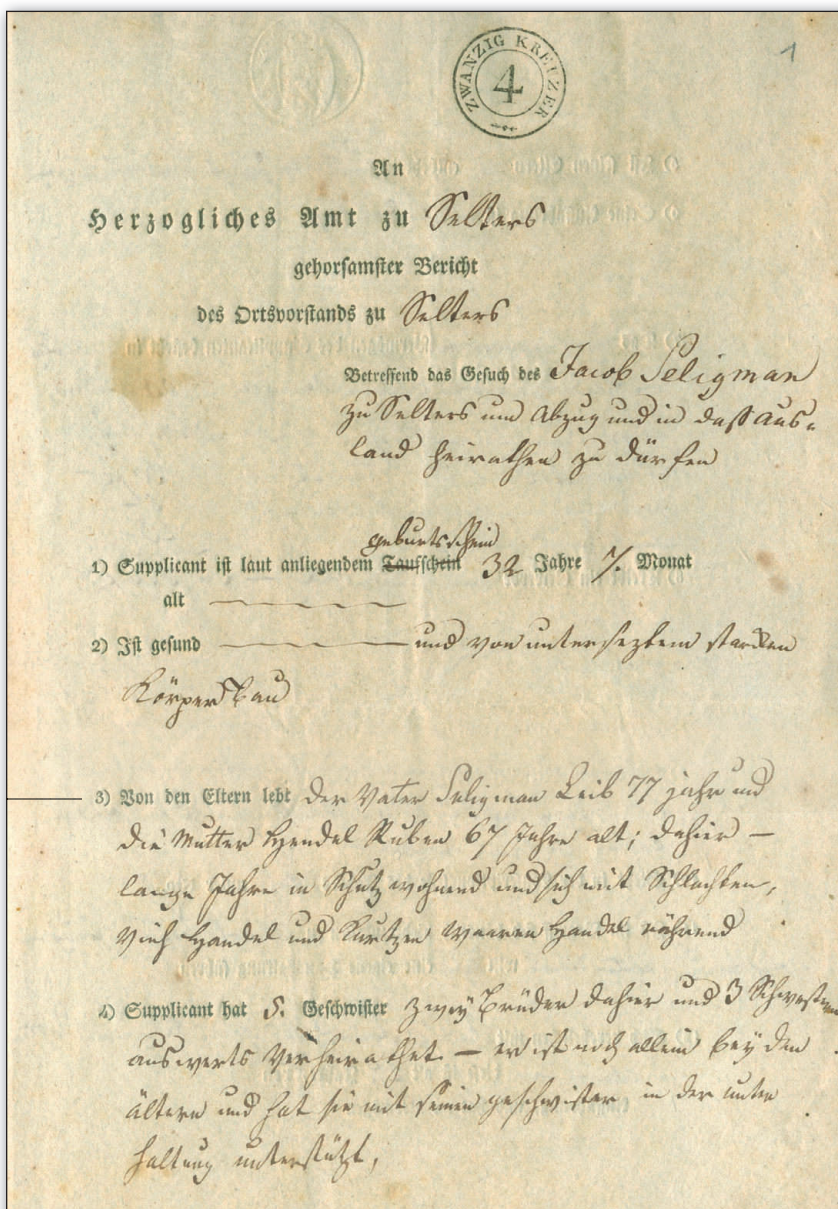 1
ZWANZIG KREUZER
4
An
Herzogliches Amt zu Selters
gehorsamster Bericht
des Ortsvorstands zu Selters
Betreffend das Gesuch des Jacob Seligman
zu Selters um Abzug und in daß Aus-
land heirathen zu dürfen
geburtsschein
1) Supplicant ist laut anliegendem Taufschein 32 Jahre 7. Monat
alt
2) Ist gesund und von unterseztem starcken
Körperbau
3) Von den Eltern lebt der Vater Seligman Leib 77 jahr und
die Mutter Hendel Ruben 67 Jahre alt; dahier –
lange Jahre in Schutz wohnend und sich mit Schlachten,
Vieh Handel und Kurtzen Waaren Handel nährend
4) Supplicant hat 5. Geschwister zwey Brüder dahier und 3 Schwestern
auswerts Verheirathet – er ist noch allein bey den
ältern und hat sie mit seinen geschwister in der unter
haltung unterstützt,